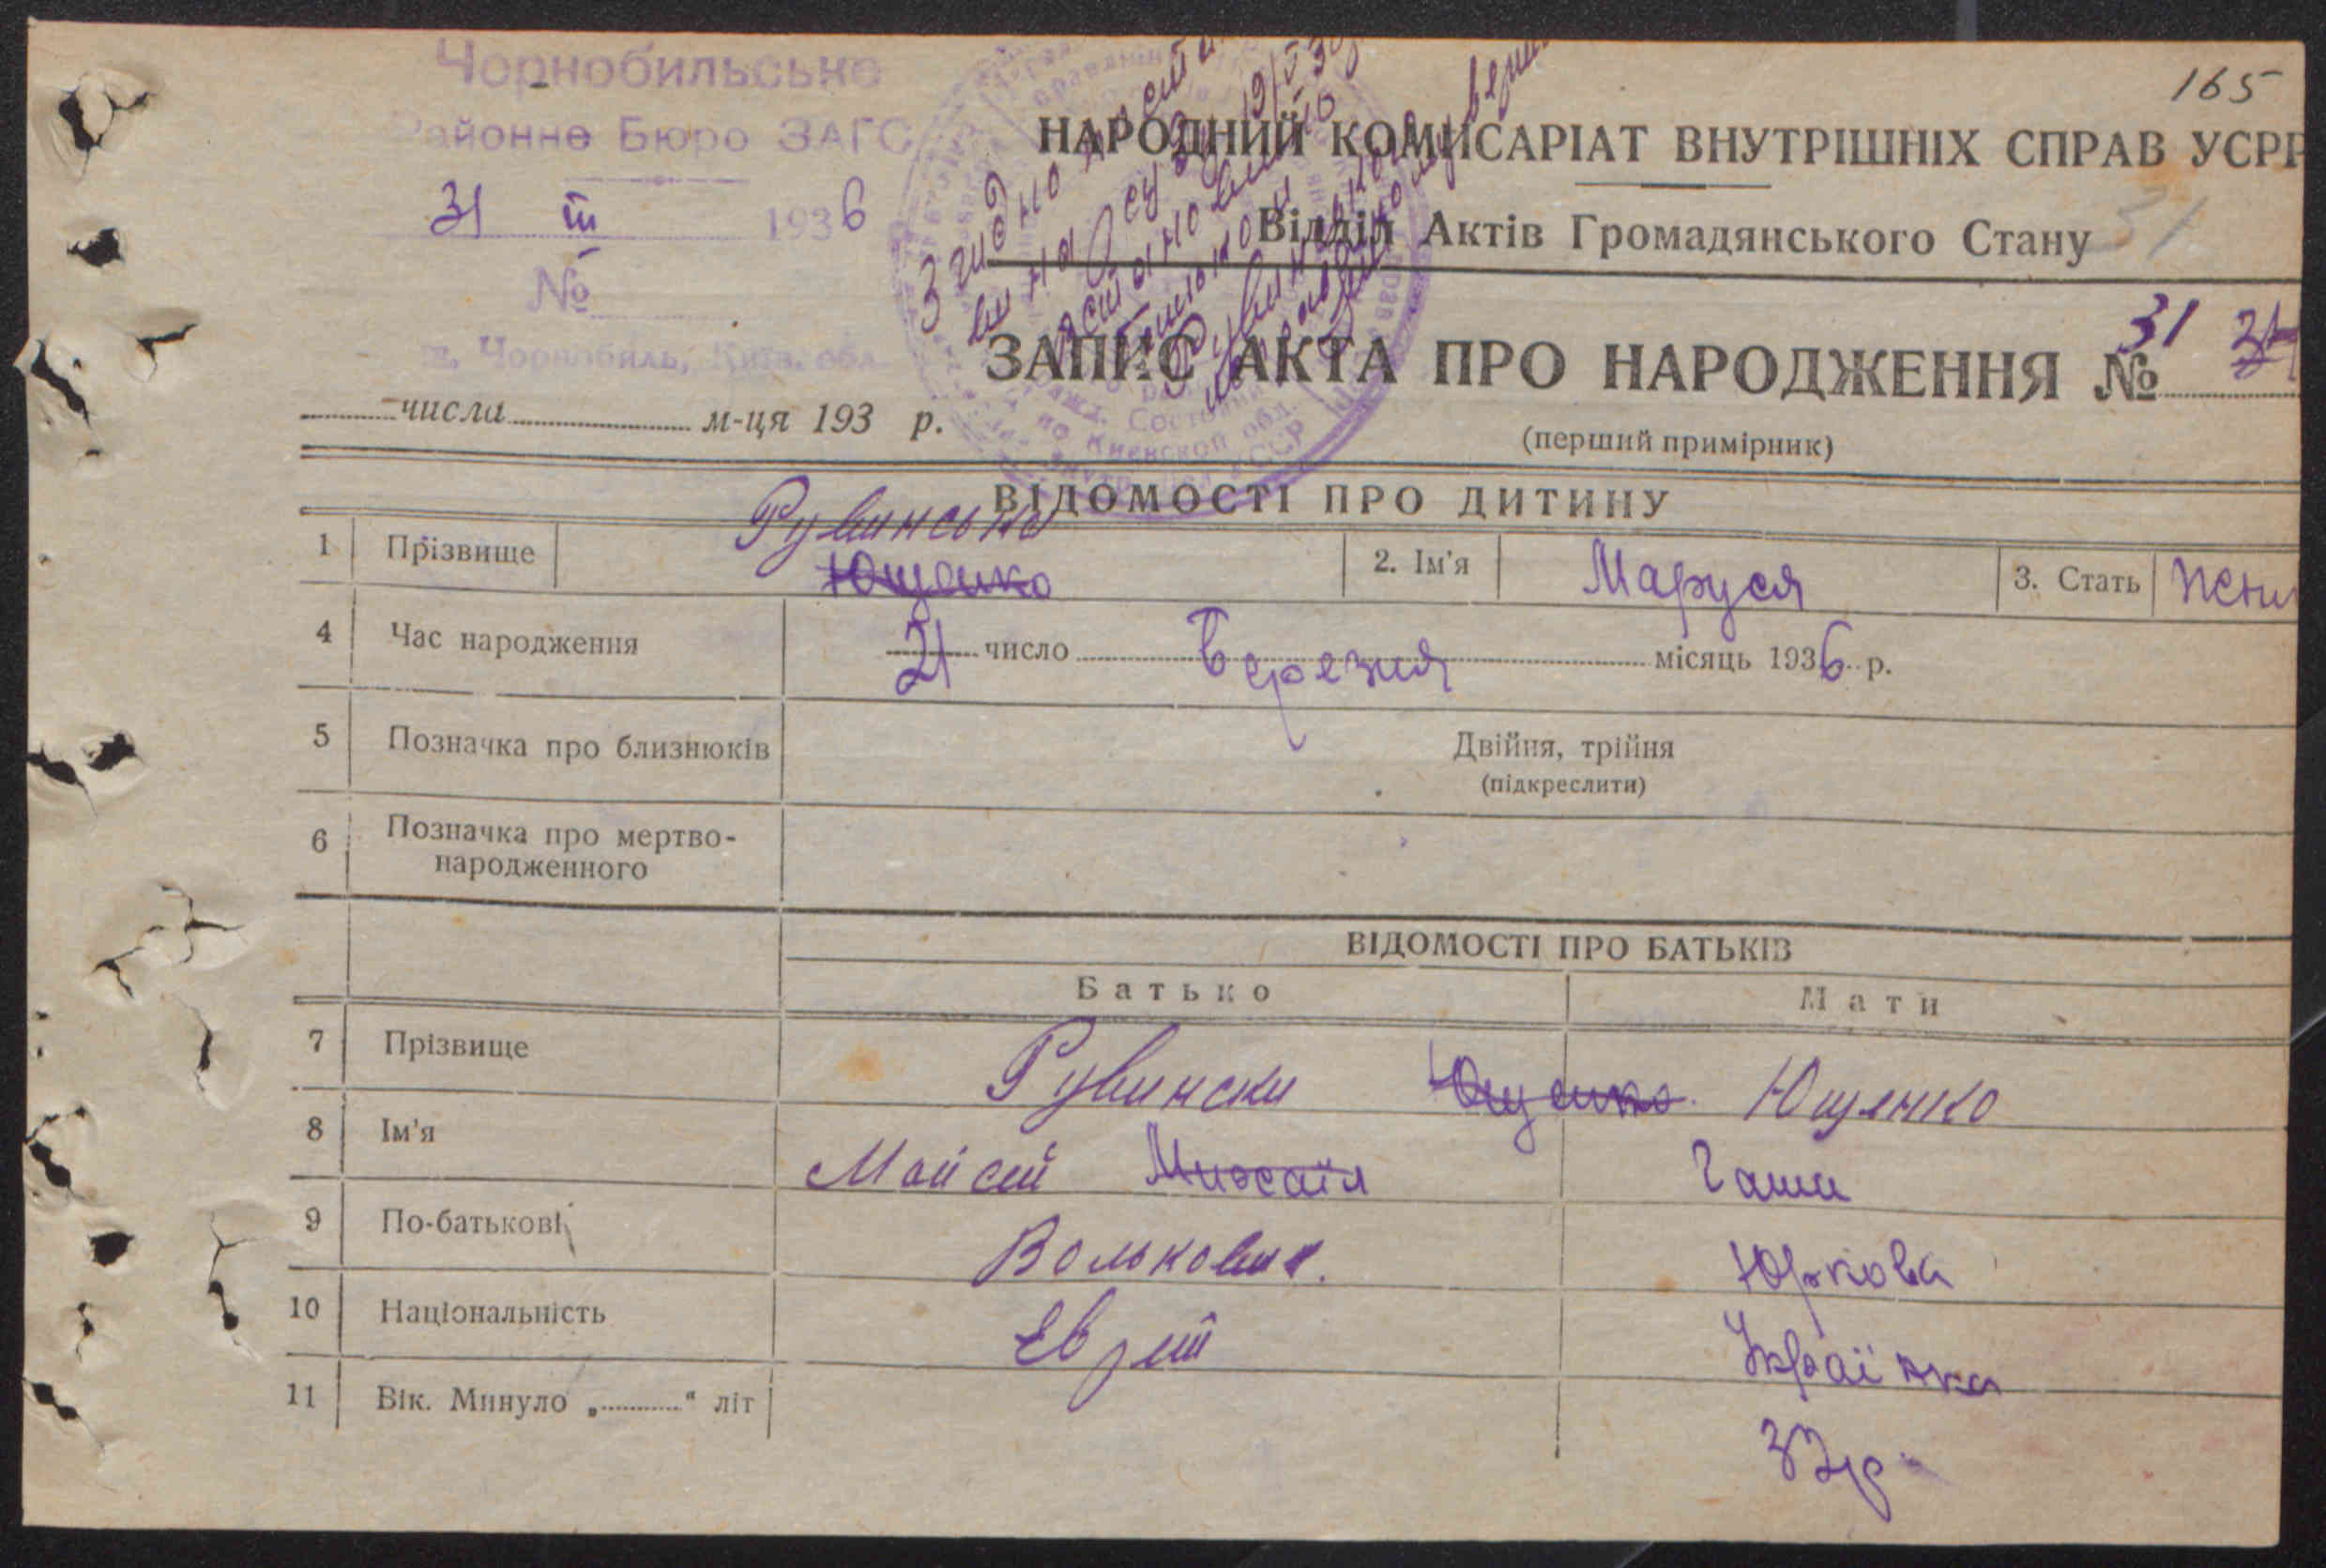 165
Чорнобильське
Районне Бюро ЗАГС
31 III 1936
№
м. Чорнобиль, Київ. обл.
НАРОДНИЙ КОМІСАРІАТ ВНУТРІШНІХ СПРАВ УСРР
Відділ Актів Громадянського Стану 31
ЗАПИС АКТА ПРО НАРОДЖЕННЯ № 31
числа м-ця 193 р.
(перший примірник)
ВІДОМОСТІ ПРО ДИТИНУ
Рувинська
1 Прізвище Ющенко 2. Ім'я Маруся 3. Стать
4 Час народження 21 число березня місяць 1936 р.
5 Позначка про близнюків Двійня, трійня
(підкреслити)
6 Позначка про мертво-
народженного
ВІДОМОСТІ ПРО БАТЬКІВ
Батько Мати
7 Прізвище Рувински Ющенко Ющенко
8 Ім'я Мойсей Михаіл Гаша
9 По-батькові Волькович. Юркова
10 Національність Еврей Українка
11 Вік. Минуло „ “ літ 32 р.